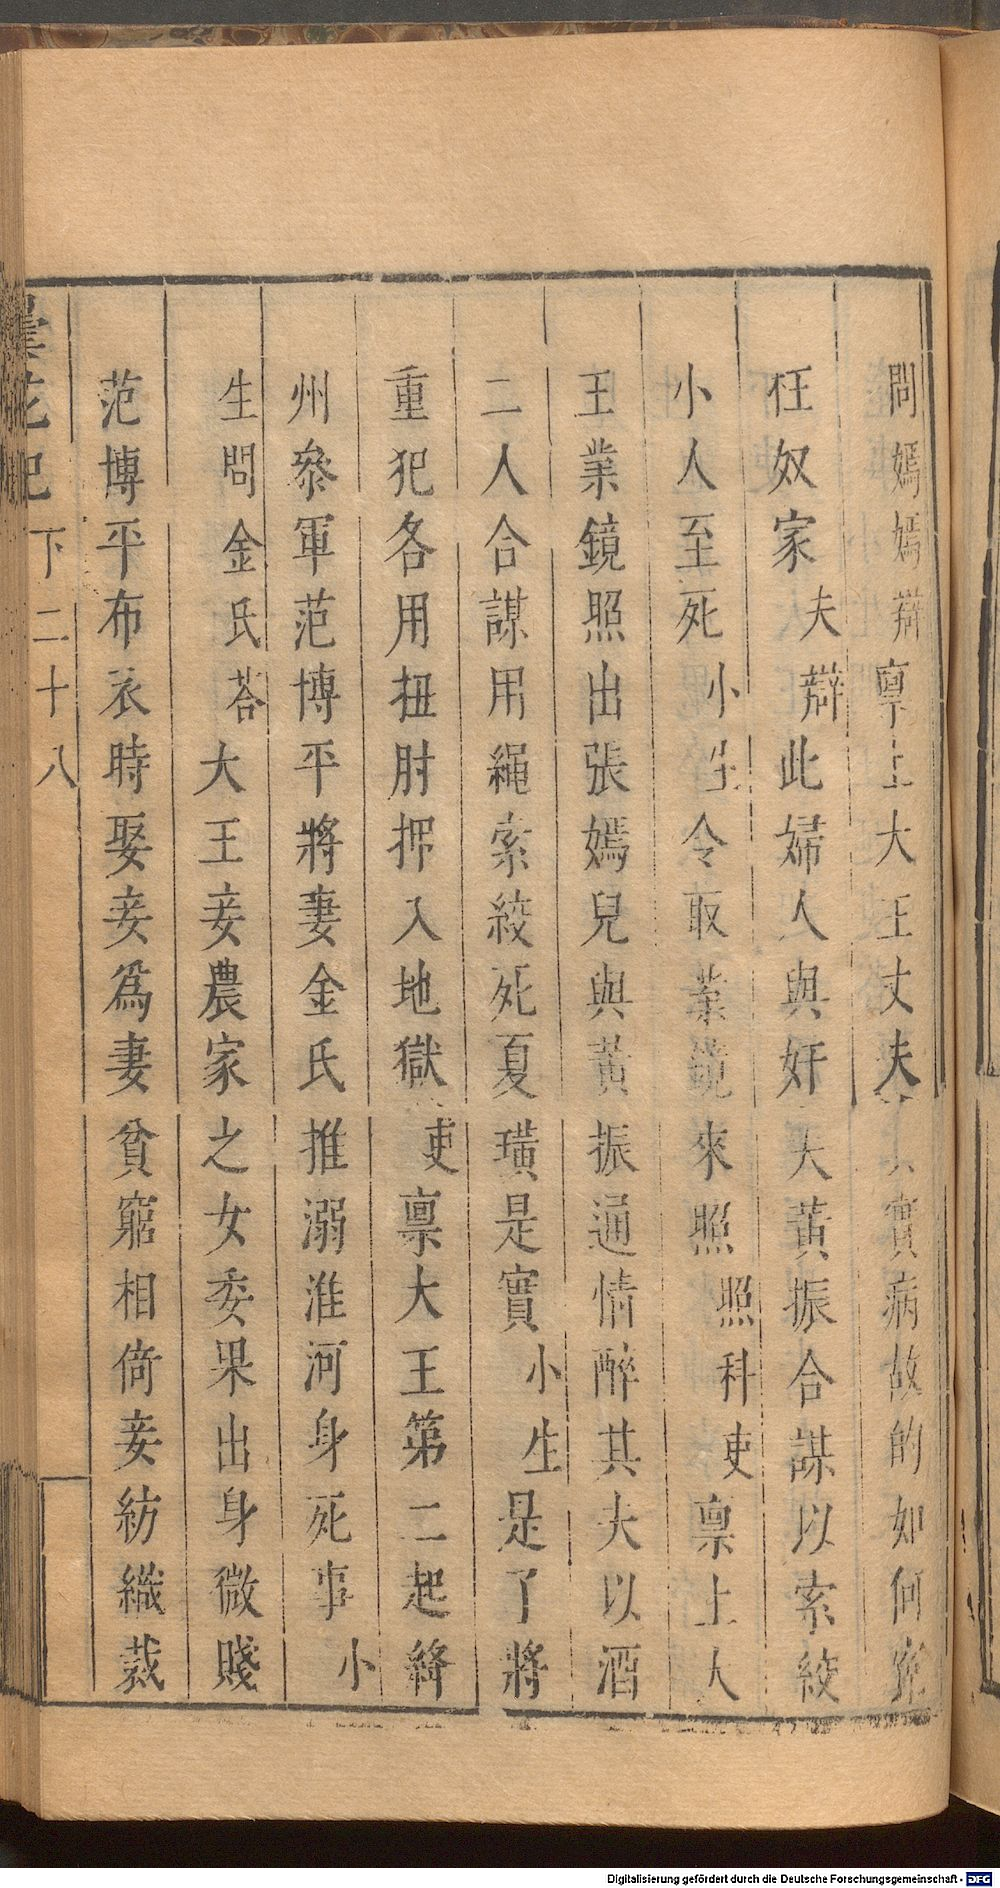 問嫣嫣辯禀上大王丈夫其實病故的如何寃
枉奴家夫辯此婦人與奸夫黃振合謀以索絞
小人至死小生令取業鏡來照照科吏禀上人
王業鏡照出張嫣兒與黃振通情醉其夫以酒
二人合謀用繩索絞死夏璜是實小生是了將
重犯各用扭肘押入地獄吏禀大王第二起絳
州叅軍范博平將妻金氏推溺淮河身死事小
生問金氏荅大王妾農家之女委果出身微賤
范博平布衣時娶妾爲妻貧窮相倚妾紡織裁
曇花記 下二十八
Digitalisierung gefördert durch die Deutsche Forschungsgemeinschaft - DFG